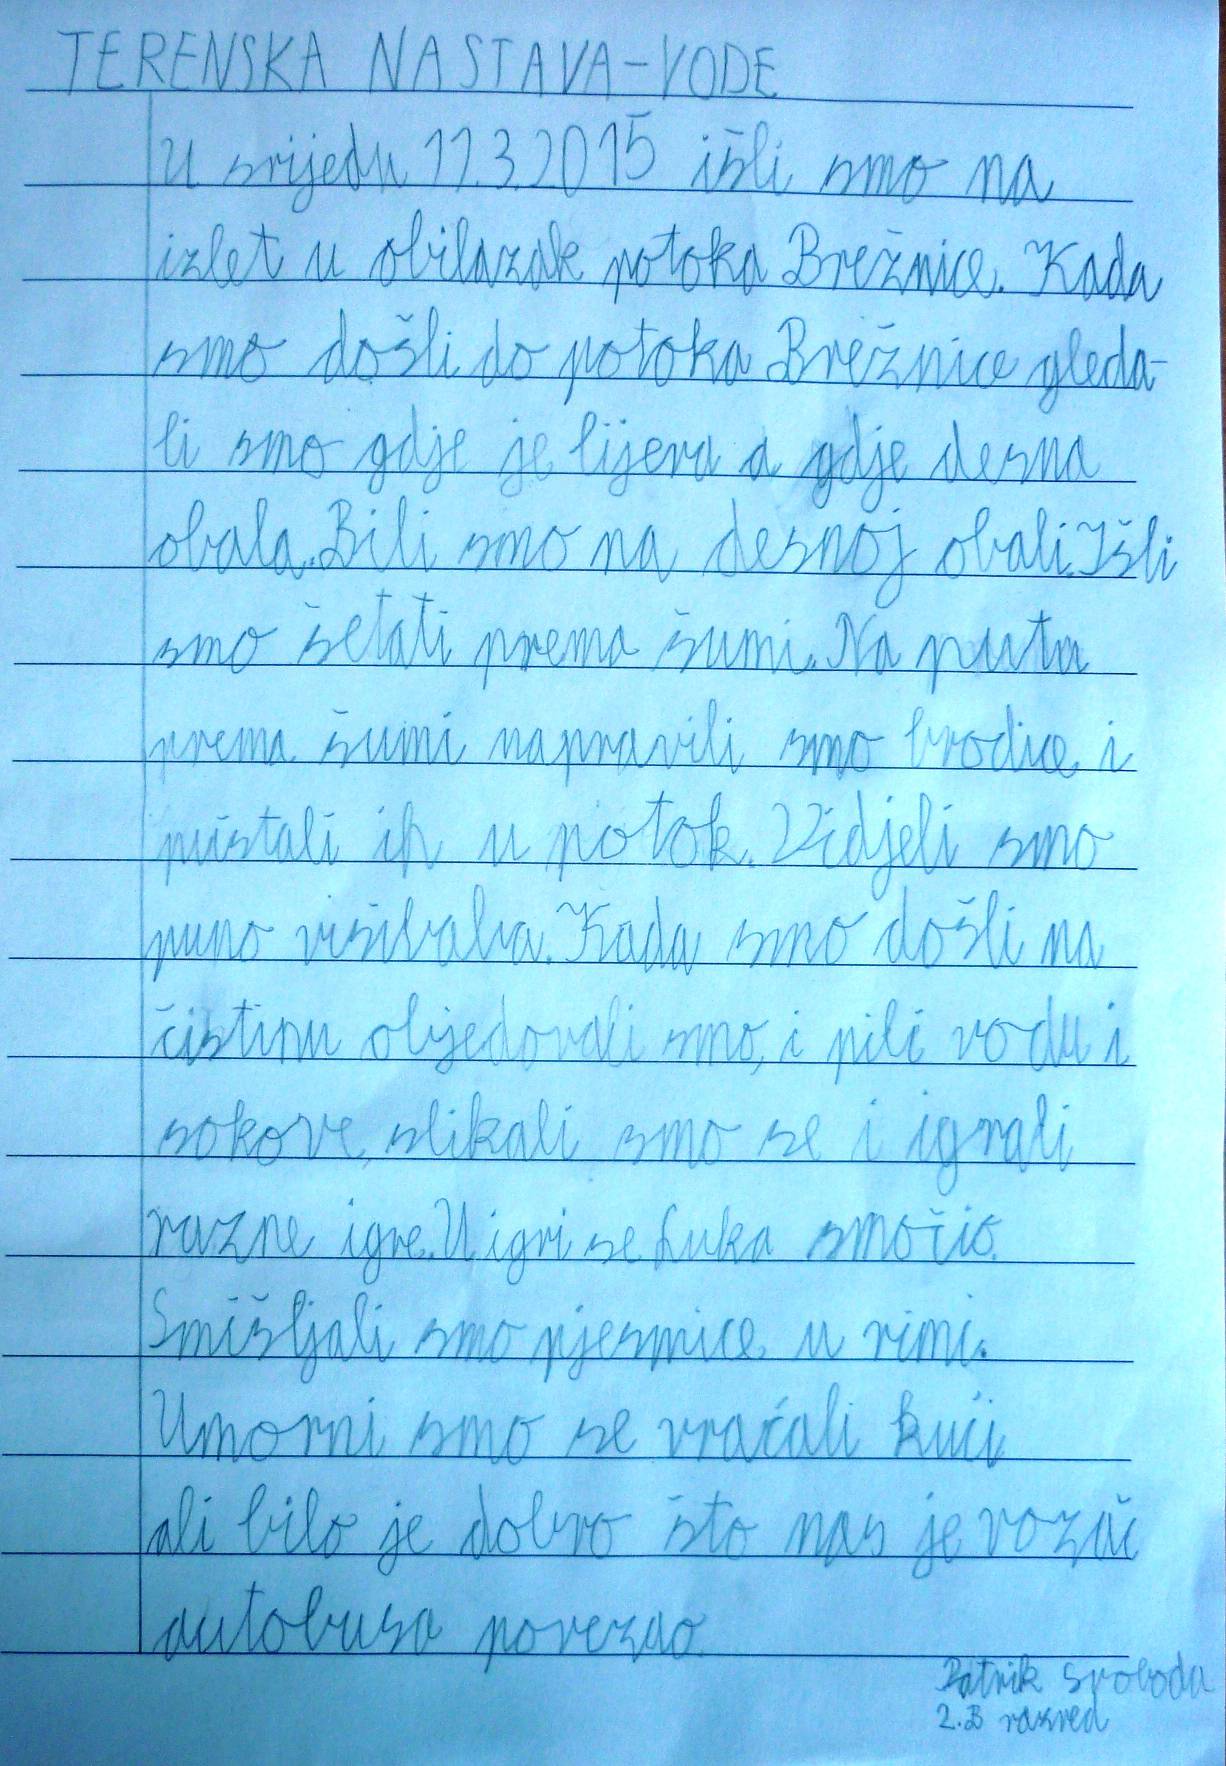 TERENSKA NASTAVA-VODE
U srijedu 11.3.2015 išli smo na
izlet u obilazak potoka Brežnice. Kada
smo došli do potoka Brežnice gleda-
li smo gdje je lijeva a gdje desna
obala. Bili smo na desnoj obali. Išli
smo šetati prema šumi. Na putu
prema šumi napravili smo brodice i
pustali ih u potok. Vidjeli smo
puno visibaba. Kada smo došli na
čistinu objedovali smo, i pili vodu i
sokove, slikali smo se i igrali
razne igre. U igri se Luka smočio.
Smišljali smo pjesmice u rimi.
Umorni smo se vraćali kući
ali bilo je dobro što nas je vozač
autobusa povezao.
Patrik Svoboda
2.B razred